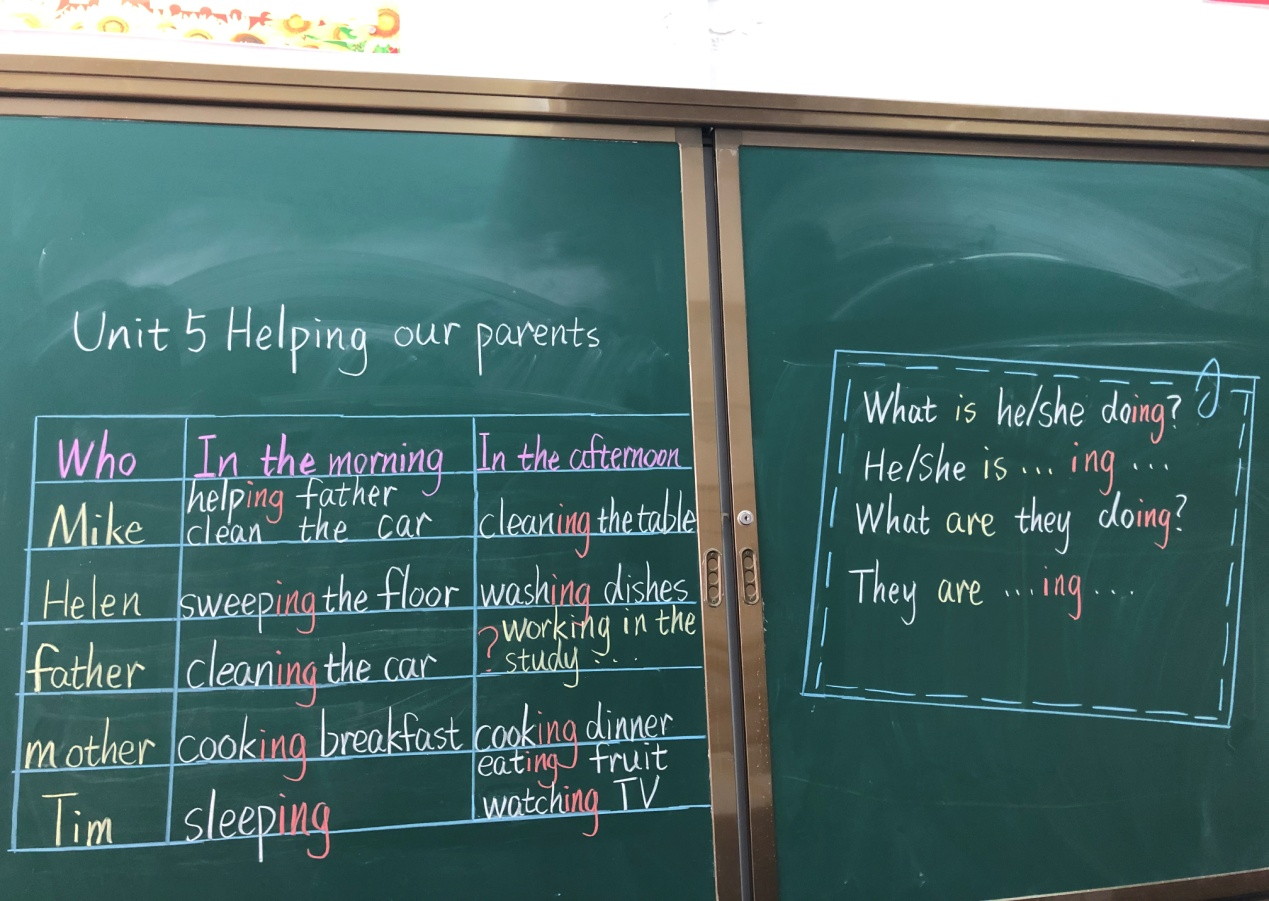 Unit 5 Helping our parents
Who In the morning In the afternoon
helping father
Mike clean the car cleaning the table
Helen sweeping the floor washing dishes
? working in the
father cleaning the car study ...
mother cooking breakfast cooking dinner
eating fruit
Tim sleeping watching TV
What is he/she doing?
He/She is ... ing ...
What are they doing?
They are ... ing ...